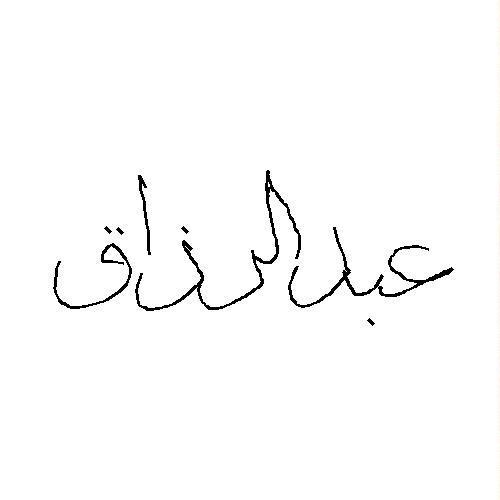 عبدالرزاق